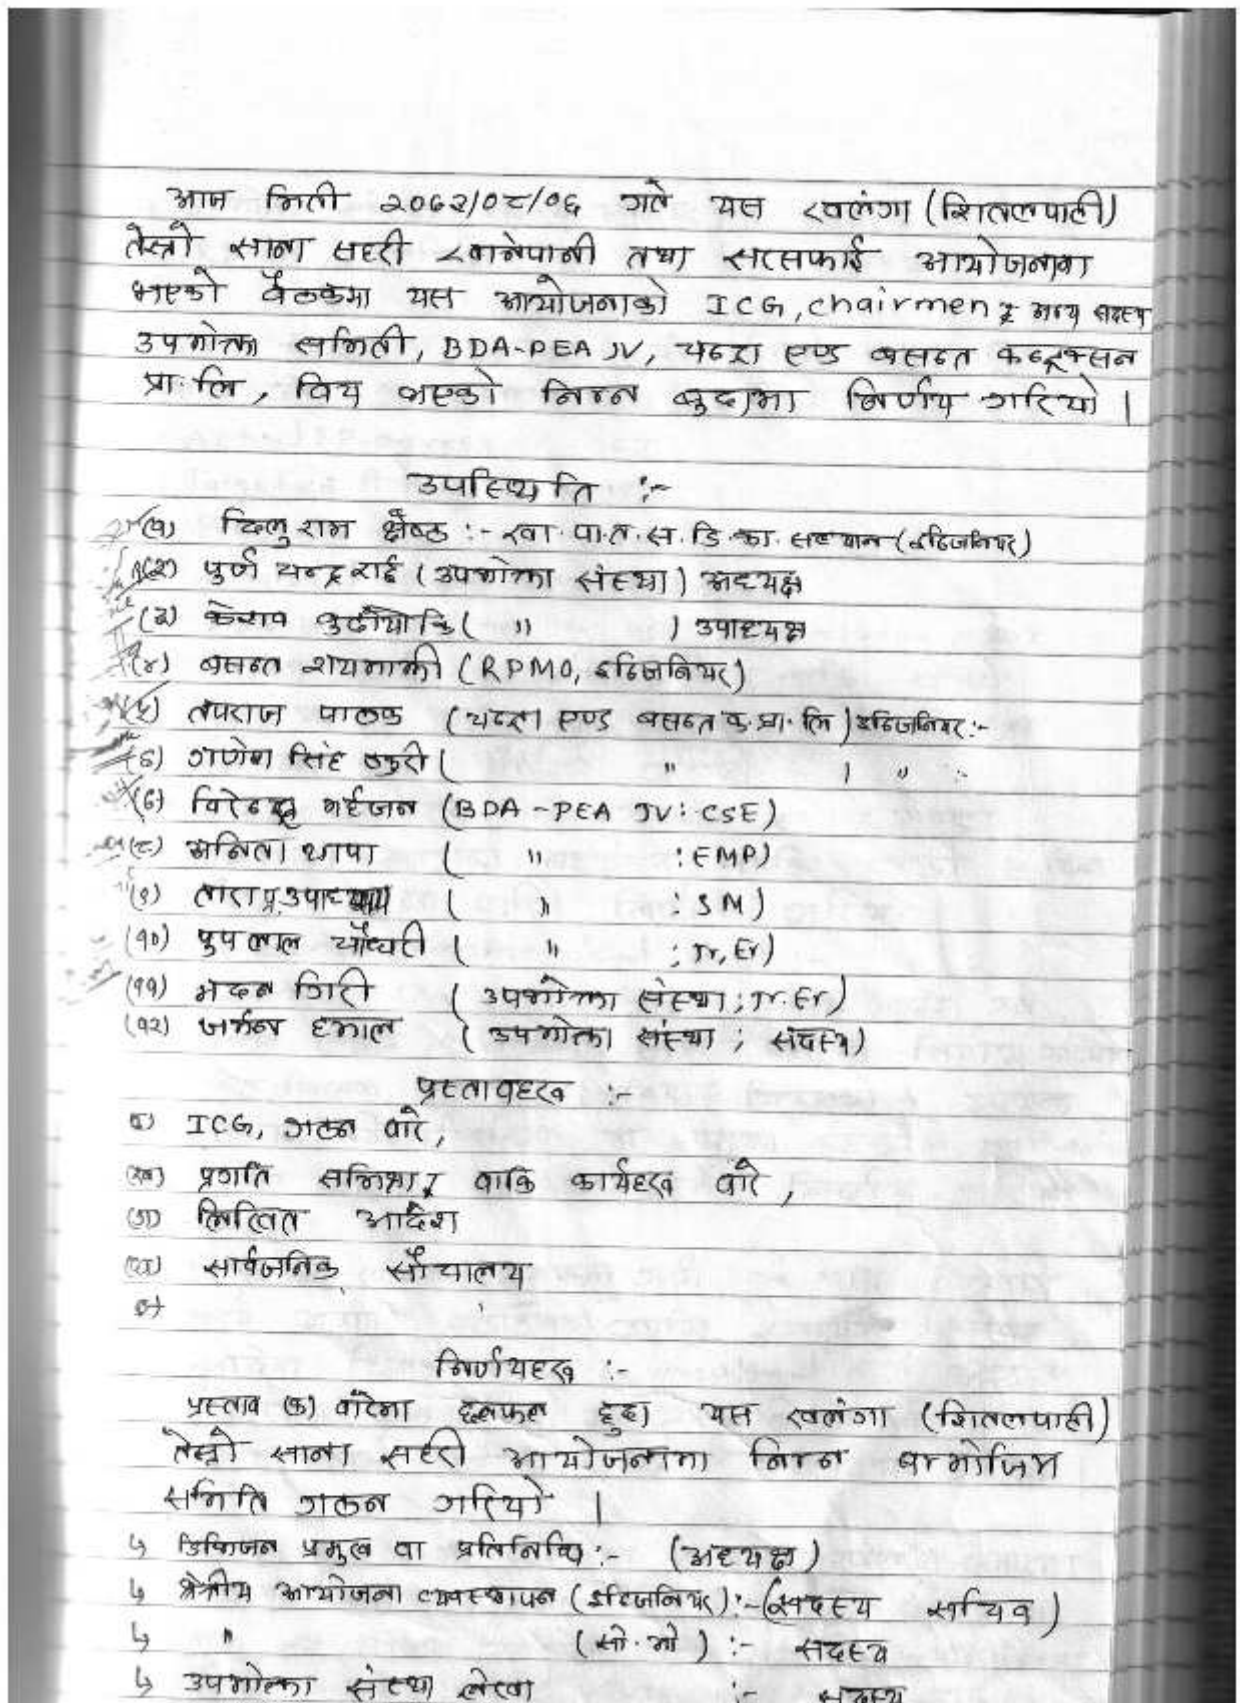 आज मिती २०७२/०८/०६ गते यस खलंगा (शितलपाटी)
तेस्रो साना सहरी खानेपानी तथा सरसफाई आयोजनामा
भएको बैठकमा यस आयोजनाको ICG, chairmen र अन्य सदस्य
उपभोक्ता समिती, BDA-PEA JV, चन्द्रा एण्ड बसन्त कन्ट्रक्सन
प्रा. लि, विच भएको निम्न बुदामा निर्णय गरियो ।
उपस्थिति :-
(१) दिलु राम श्रेष्ठ :- खा. पा. त. स. डि. का. सल्यान (इन्जिनियर)
(२) पुर्ण चन्द्र राई (उपभोक्ता संस्था) अध्यक्ष
(३) केशव बुढाथोकि ( " ) उपाध्यक्ष
(४) बसन्त रायमाझी (RPMO, इन्जिनियर)
(५) तपराज पाठक (चन्द्रा एण्ड बसन्त क. प्रा. लि) इन्जिनियर :-
(६) गणेश सिंह ठकुरी ( " ) " :-
(७) विरेन्द्र गईजन (BDA-PEA JV: CSE)
(८) अनिता थापा ( " : EMP)
(९) तारा प्र. उपाध्याय ( " : SM)
(१०) पुप लाल चौधरी ( " ; Jr, Er)
(११) मदन गिरी (उपभोक्ता संस्था ; Jr. Er)
(१२) जर्मन हमाल (उपभोक्ता संस्था ; सदस्य)
प्रस्तावहरु :-
क) ICG, गठन बारे,
(ख) प्रगति समिक्षा र बाकि कार्यहरु बारे,
(ग) लिखित आदेश
(घ) सार्वजनिक सौचालय
निर्णयहरु :-
प्रस्ताव (क) बारेमा छलफल हुदा यस खलंगा (शितलपाटी)
तेस्रो साना सहरी आयोजनामा निम्न बमोजिम
समिति गठन गरियो ।
↳ डिभिजन प्रमुख वा प्रतिनिधि :- (अध्यक्ष)
↳ क्षेत्रीय आयोजना व्यवस्थापन (इन्जिनियर) :- (सदस्य सचिव)
↳ " (सो. मो) :- सदस्य
↳ उपभोक्ता संस्था लेखा :- सदस्य